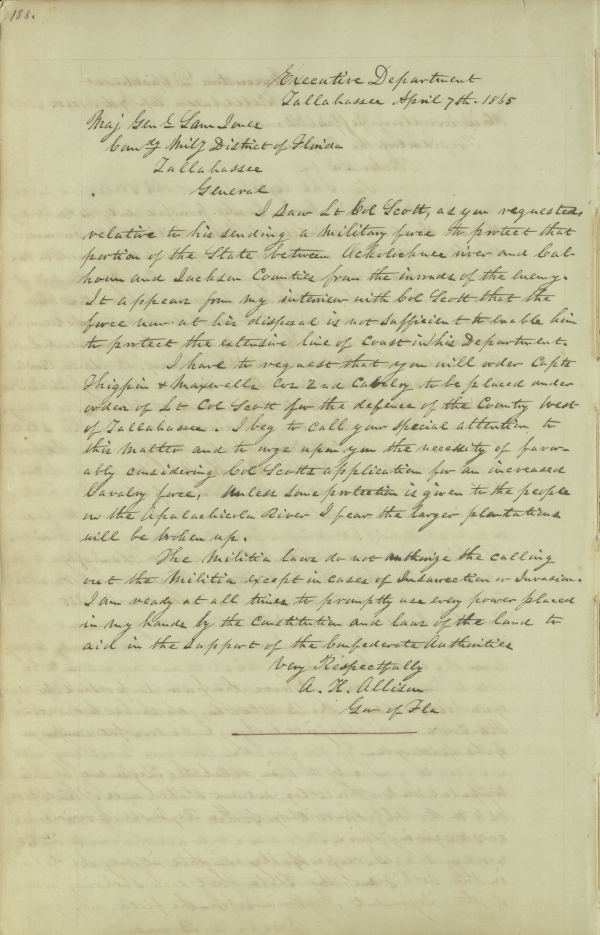 188.
Executive Department
Tallahassee April 7th. 1865
Maj Genl Sam Jones
Comdg Mil'y District of Florida
Tallahassee
General
I saw Lt Col Scott, as you requested,
relative to his sending a military force to protect that
portion of the State between Ocklocknee river and Cal-
houn and Jackson Counties from the inroads of the enemy.
It appears from my interview with Col Scott that the
force now at his disposal is not sufficient to enable him
to protect the extensive line of Coast in his Department.
I have to request that you will order Capts
Thigpin & Maxwells Cos 2nd Cavalry to be placed under
orders of Lt Col Scott for the defence of the Country West
of Tallahassee. I beg to call your special attention to
this matter and to urge upon you the necessity of favor-
ably considering Col Scotts application for an increased
Cavalry force, Unless some protection is given to the people
on the Apalachicola River I fear the larger plantations
will be broken up.
The Militia laws do not authorize the calling
out the Militia except in cases of Insurrection or Invasion.
I am ready at all times to promptly use every power placed
in my hands by the Constitution and laws of the land to
aid in the support of the Confederate Authorities
Very Respectfully
A. K. Allison
Gov of Fla